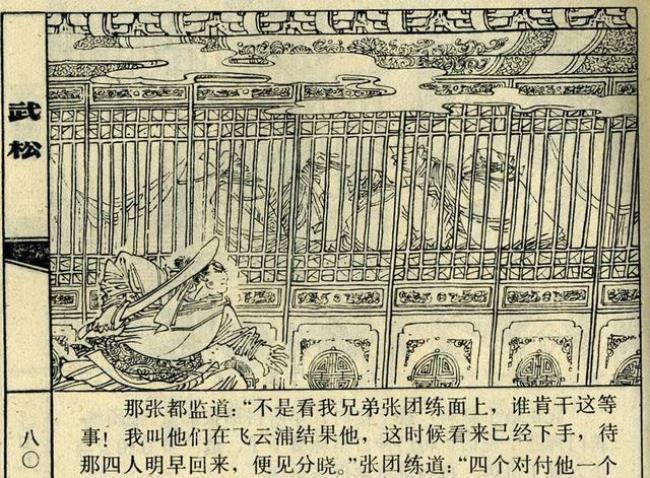 武松
八〇
那张都监道：“不是看我兄弟张团练面上，谁肯干这等
事！我叫他们在飞云浦结果他，这时候看来已经下手，待
那四人明早回来，便见分晓。”张团练道：“四个对付他一个